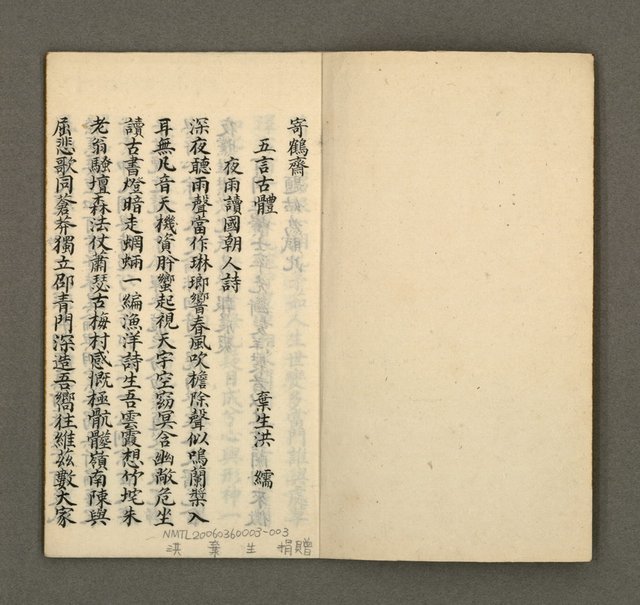 寄鶴齋
五言古體　棄生洪繻
夜雨讀國朝人詩
深夜聽雨聲當作琳瑯響春風吹檐除聲似鳴蘭槳入
耳無凡音天機資肸蠁起視天宇空窈冥含幽敞危坐
讀古書燈暗走蝄蜽一編漁洋詩生吾雲霞想竹垞朱
老翁騷壇森法仗蕭瑟古梅村感慨極骯髒嶺南陳與
屈悲歌同蒼莽獨立邵青門深造吾嚮往維茲數大家
NMTL20060360003-003
洪棄生捐贈